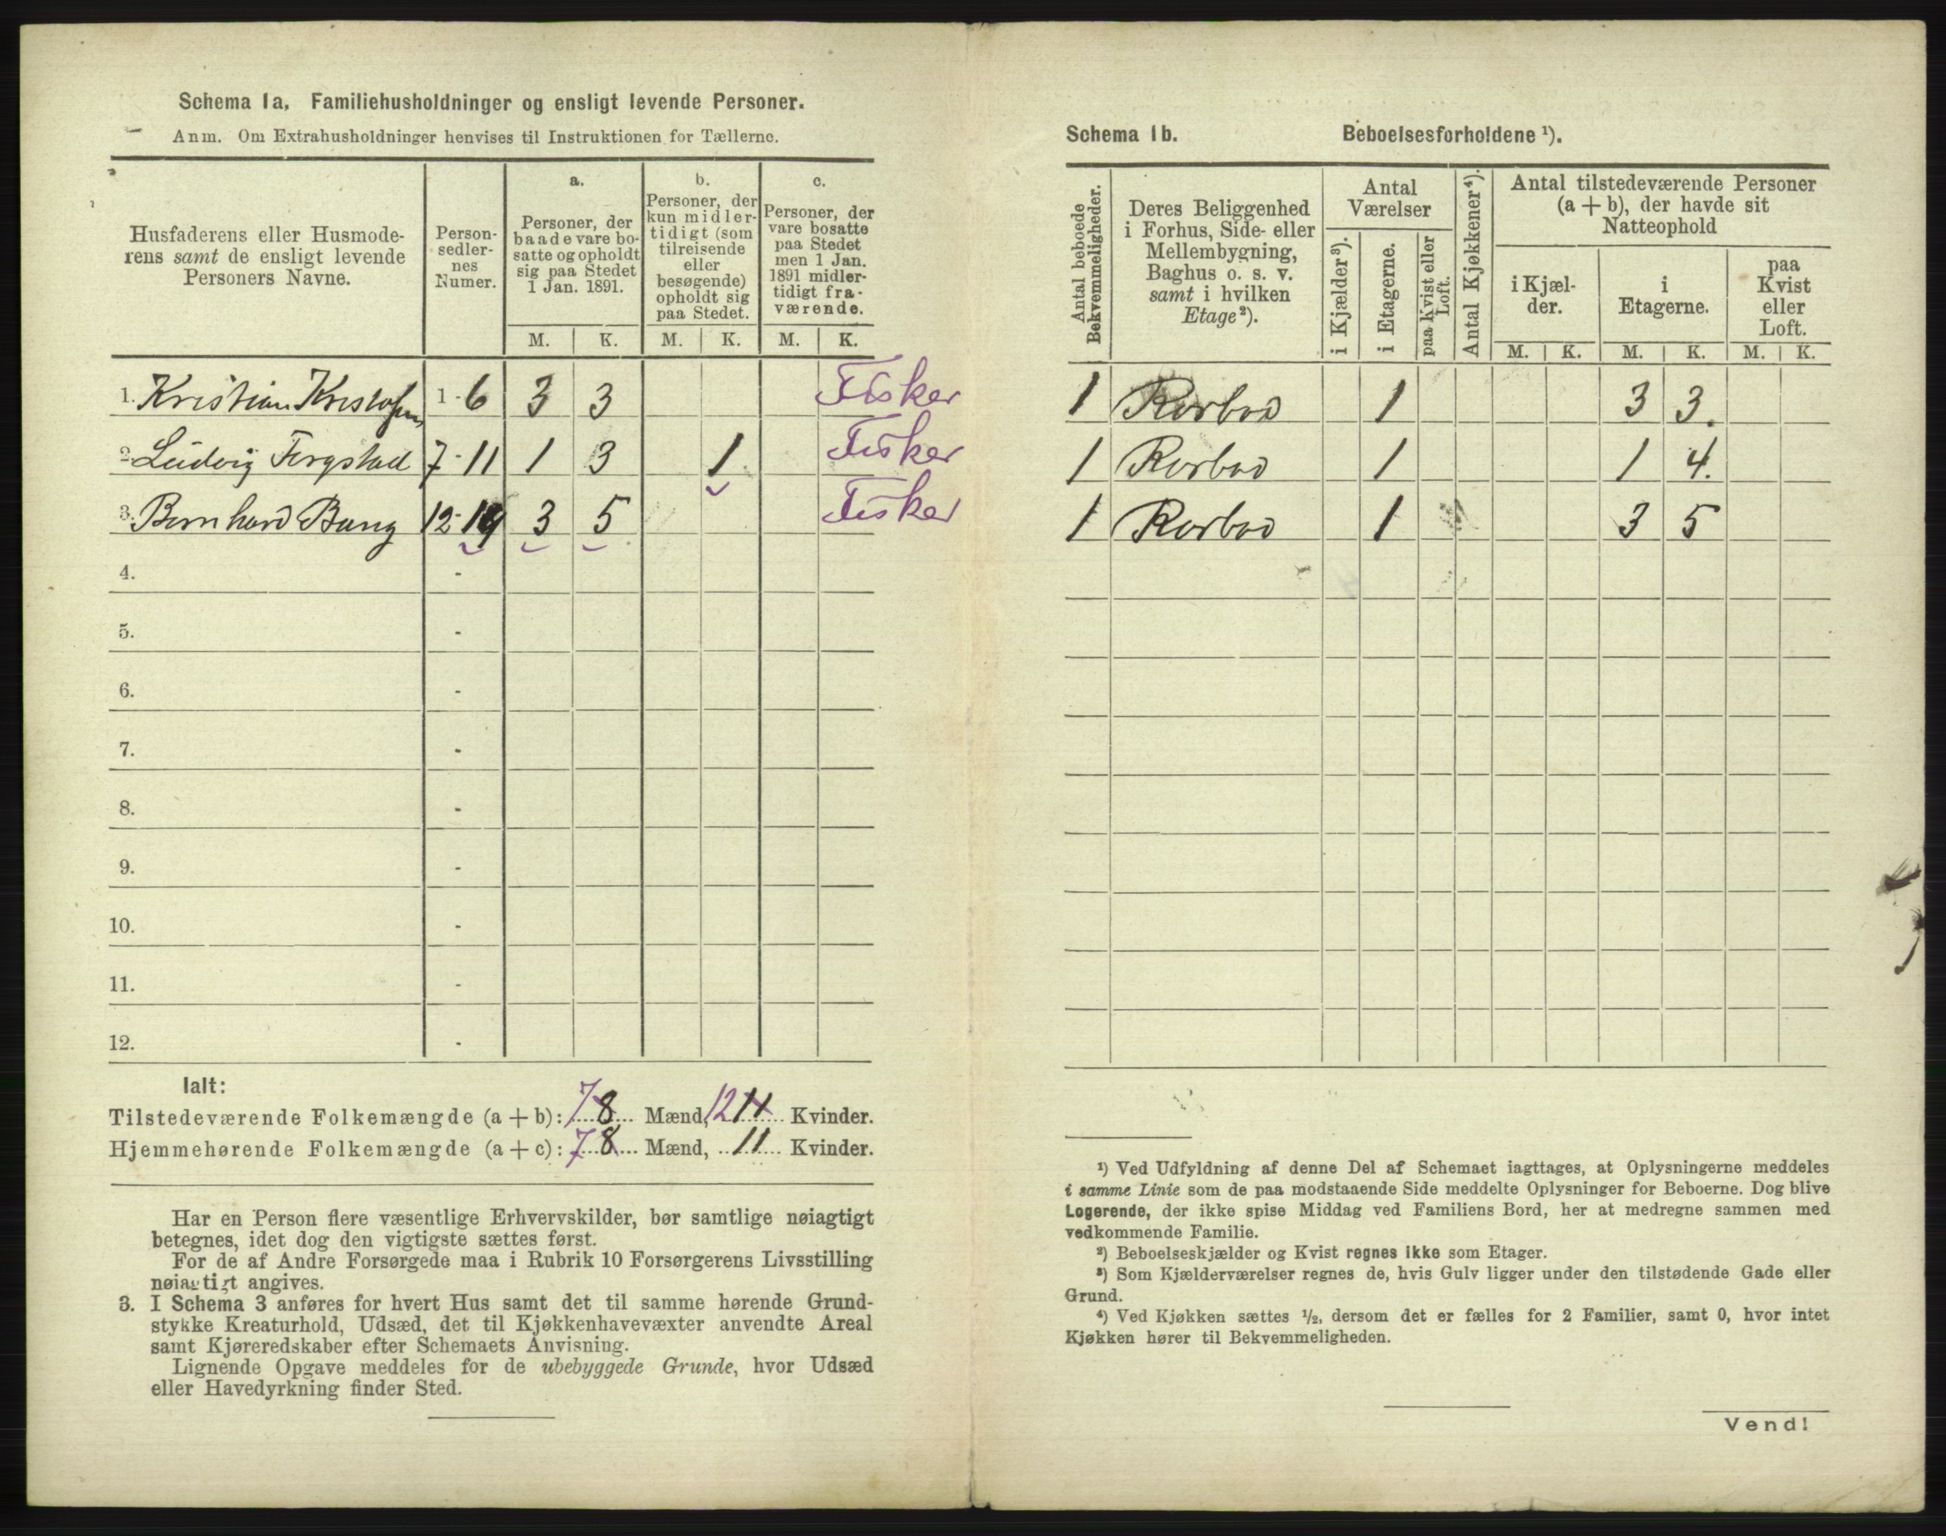 Schema 1a. Familiehusholdninger og ensligt levende Personer.
Anm. Om Extrahusholdninger henvises til Instruktionen for Tællerne.
Husfaderens eller Husmode-
rens samt de ensligt levende
Personers Navne.
Person-
sedler-
nes
Numer.
a.
Personer, der
baade vare bo-
satte og opholdt
sig paa Stedet
1 Jan. 1891.
b.
Personer, der
kun midler-
tidigt (som
tilreisende
eller
besøgende)
opholdt sig
paa Stedet.
c.
Personer, der
vare bosatte
paa Stedet
men 1 Jan.
1891 midler-
tidigt fra-
værende.
M. K. M. K. M. K.
1. Kristian Kristofsen 1-6 3 3 Fisker
2. Ludvig Fergstad 7-11 1 3 1 Fisker
3. Bernhard Bang 12-19 3 5 Fisker
4. -
5. -
6. -
7. -
8. -
9. -
10. -
11. -
12. -
Ialt:
Tilstedeværende Folkemængde (a + b): 7 8 Mænd, 12 11 Kvinder.
Hjemmehørende Folkemængde (a + c): 7 8 Mænd, 11 Kvinder.
Har en Person flere væsentlige Erhvervskilder, bør samtlige nøiagtigt
betegnes, idet dog den vigtigste sættes først.
For de af Andre Forsørgede maa i Rubrik 10 Forsørgerens Livsstilling
nøiagtigt angives.
3. I Schema 3 anføres for hvert Hus samt det til samme hørende Grund-
stykke Kreaturhold, Udsæd, det til Kjøkkenhavevæxter anvendte Areal
samt Kjøreredskaber efter Schemaets Anvisning.
Lignende Opgave meddeles for de ubebyggede Grunde, hvor Udsæd
eller Havedyrkning finder Sted.
Schema 1b. Beboelsesforholdene ¹).
Antal beboede
Bekvemmeligheder.
Deres Beliggenhed
i Forhus, Side- eller
Mellembygning,
Baghus o. s. v.
samt i hvilken
Etage²).
Antal
Værelser
i Kjælder³).
i Etagerne.
paa Kvist eller
Loft.
Antal Kjøkkener⁴).
Antal tilstedeværende Personer
(a + b), der havde sit
Natteophold
i Kjæl-
der.
i
Etagerne.
paa
Kvist
eller
Loft.
M. K. M. K. M. K.
1 Rorbod 1 3 3.
1 Rorbod 1 1 4.
1 Rorbod 1 3 5
¹) Ved Udfyldning af denne Del af Schemaet iagttages, at Oplysningerne meddeles
i samme Linie som de paa modstaaende Side meddelte Oplysninger for Beboerne. Dog blive
Logerende, der ikke spise Middag ved Familiens Bord, her at medregne sammen med
vedkommende Familie.
²) Beboelseskjælder og Kvist regnes ikke som Etager.
³) Som Kjælderværelser regnes de, hvis Gulv ligger under den tilstødende Gade eller
Grund.
⁴) Ved Kjøkken sættes ½, dersom det er fælles for 2 Familier, samt 0, hvor intet
Kjøkken hører til Bekvemmeligheden.
Vend!